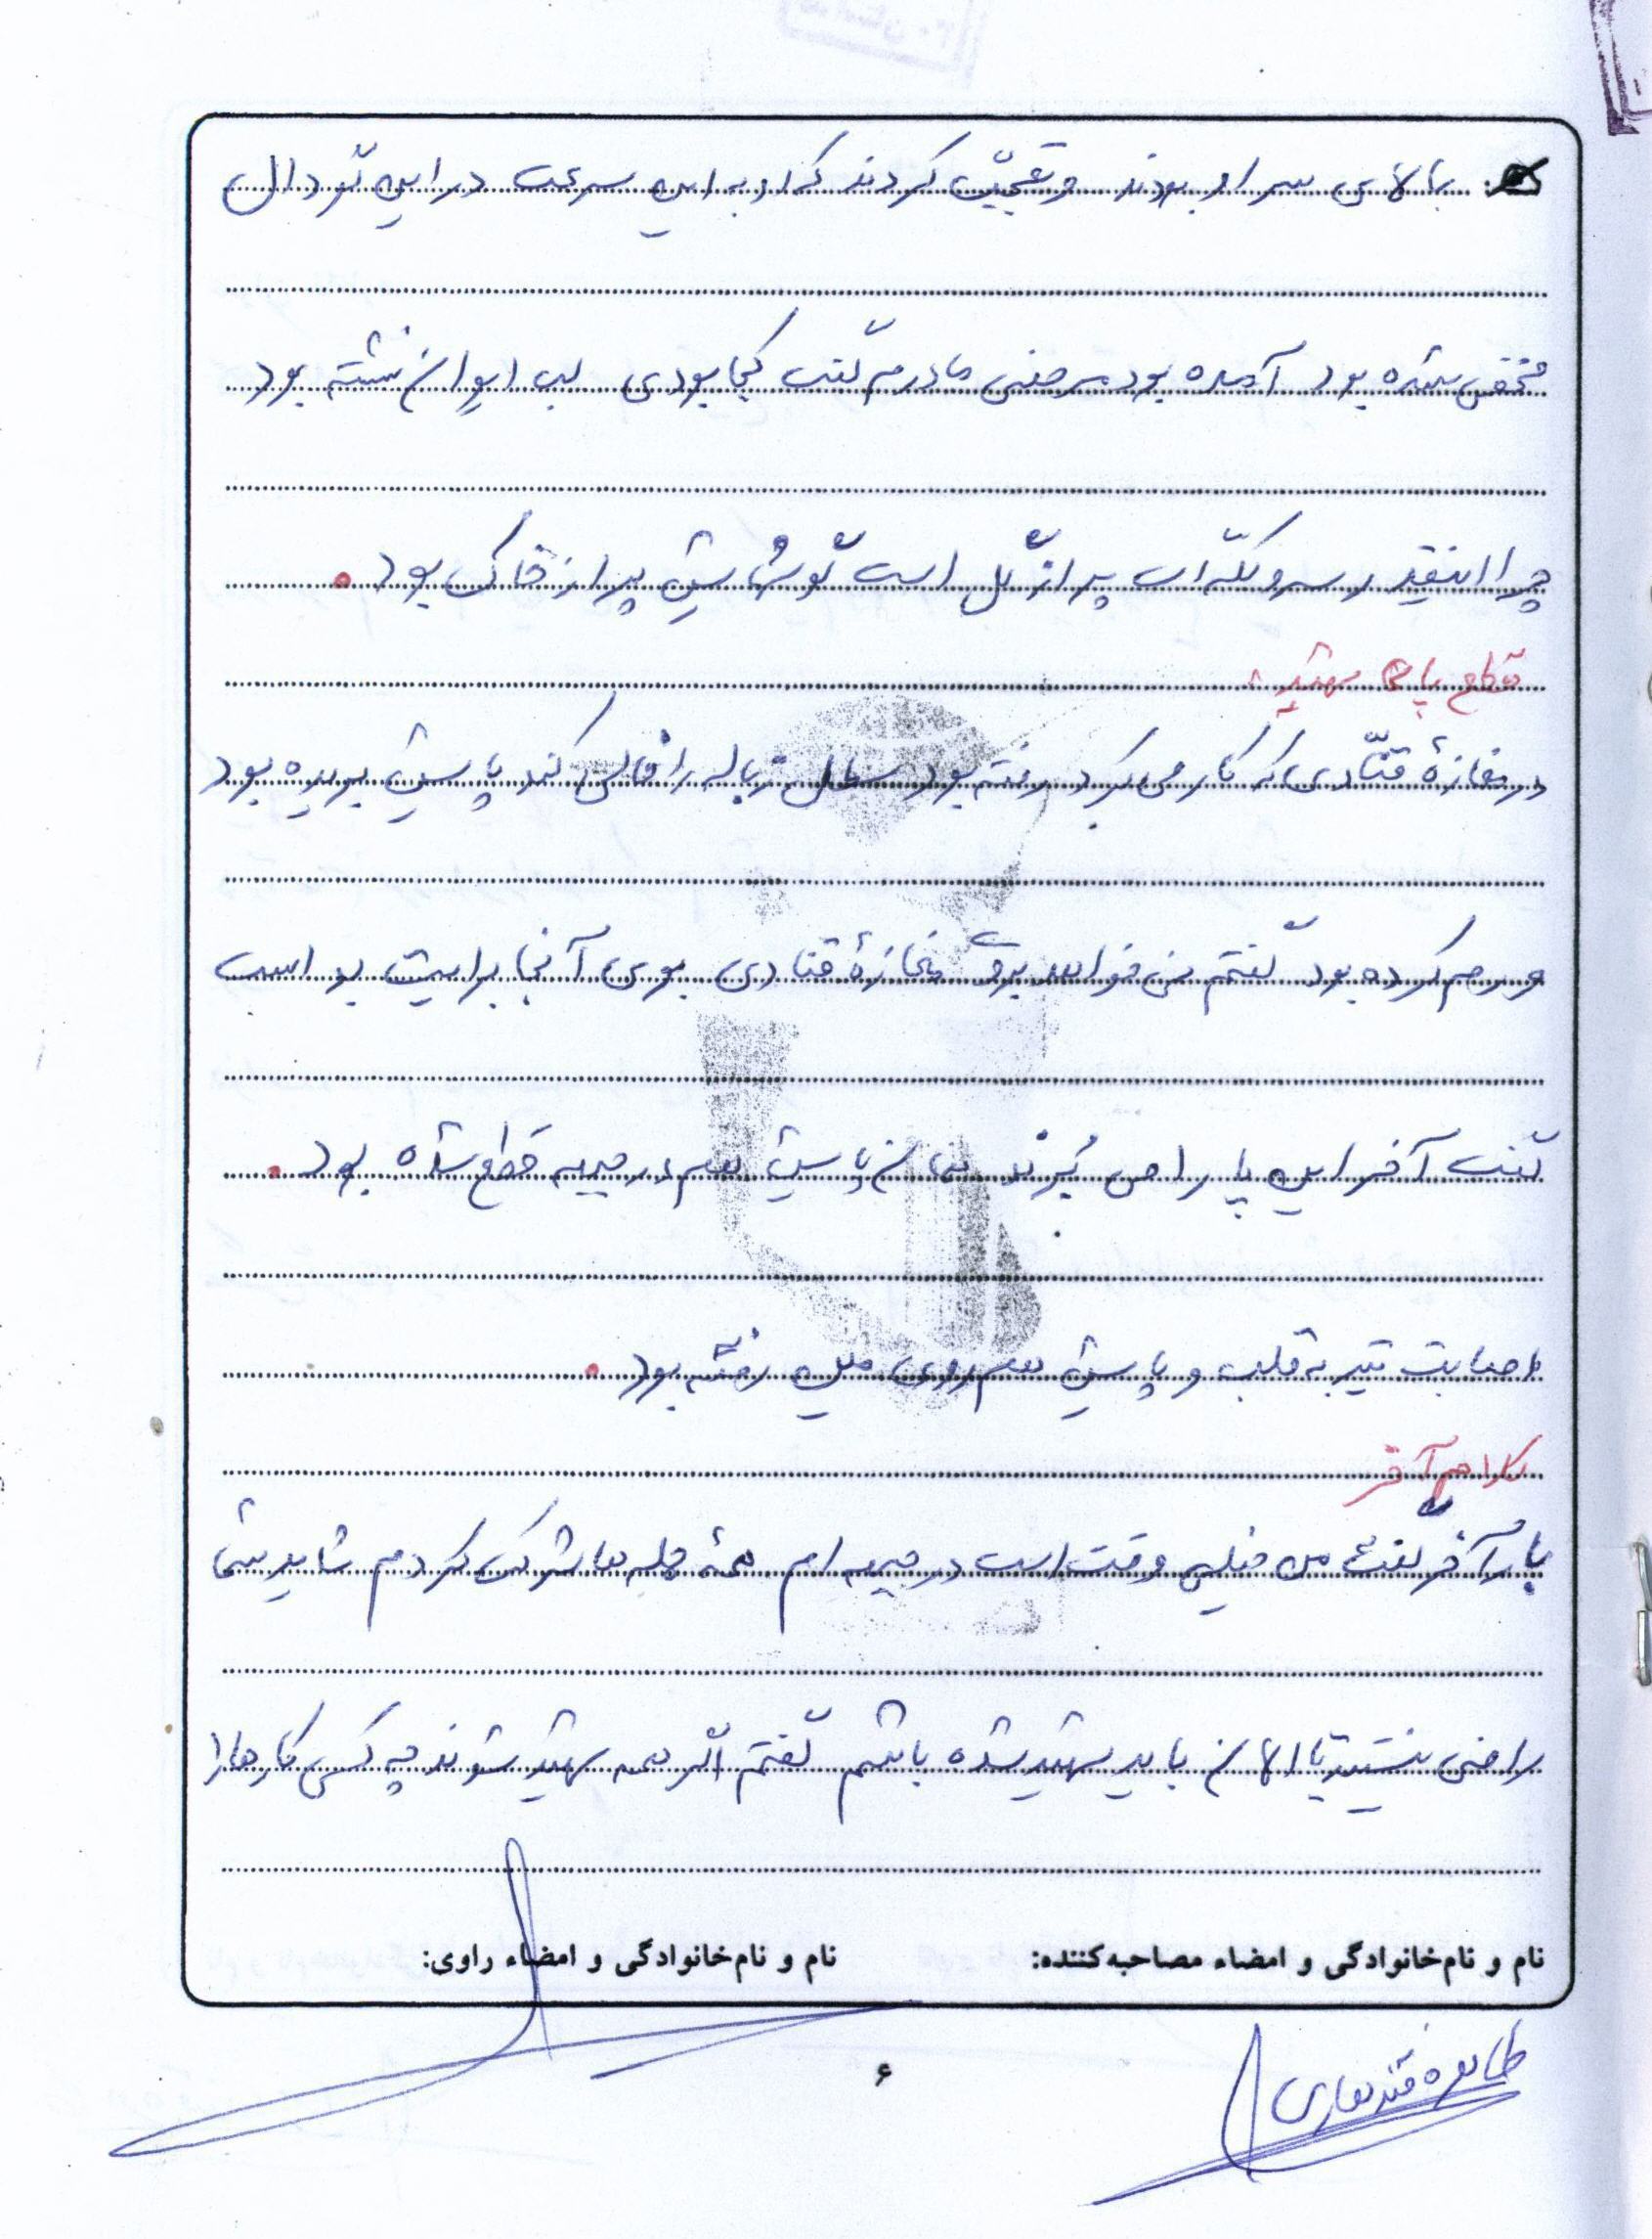 بالای سر او بودند و تعجّب کردند که او به این سرعت در این گودال
مخفی شده بود آمده بود مرخصی مادرم گفت کجا بودی لب ایوان نشسته بود
چرا اینقدر سر و کلّه‌ات پر از گل است گوشهایش پر از خاک بود.
قطع پای شهید:
در مغازهٔ قنّادی که کار می‌کرد رفته بود سطل زباله را خالی کند پایش بریده بود
ورم کرده بود گفتم نمی‌خواهد بروی مغازهٔ قنادی بوی آنجا برایت بد است
گفت آخر این پا را می‌بُرند همان پایش هم در جبهه قطع شده بود.
اصابت تیر به قلب و پایش هم روی مین رفته بود.
کلام آخر
بار آخر گفت من خیلی وقت است در جبهه‌ام همهٔ حمله‌ها شرکت کردم شاید شما
راضی نیستید تا الان باید شهید شده باشم گفتم اگر همه شهید شوند چه کسی کارها را
نام و نام‌خانوادگی و امضاء مصاحبه‌کننده: نام و نام‌خانوادگی و امضاء راوی:
طاهره قندهاری
۶